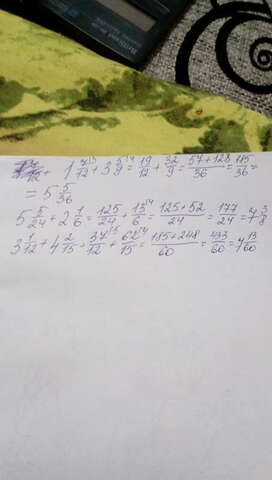 1 7/12 + 3 5/9 = 19/12 + 32/9 = 57+128/36 = 185/36 =
= 5 5/36
5 5/24 + 2 1/6 = 125/24 + 13/6 = 125+52/24 = 177/24 = 7 3/8
3 1/12 + 4 2/15 = 37/12 + 62/15 = 185+248/60 = 433/60 = 7 13/60